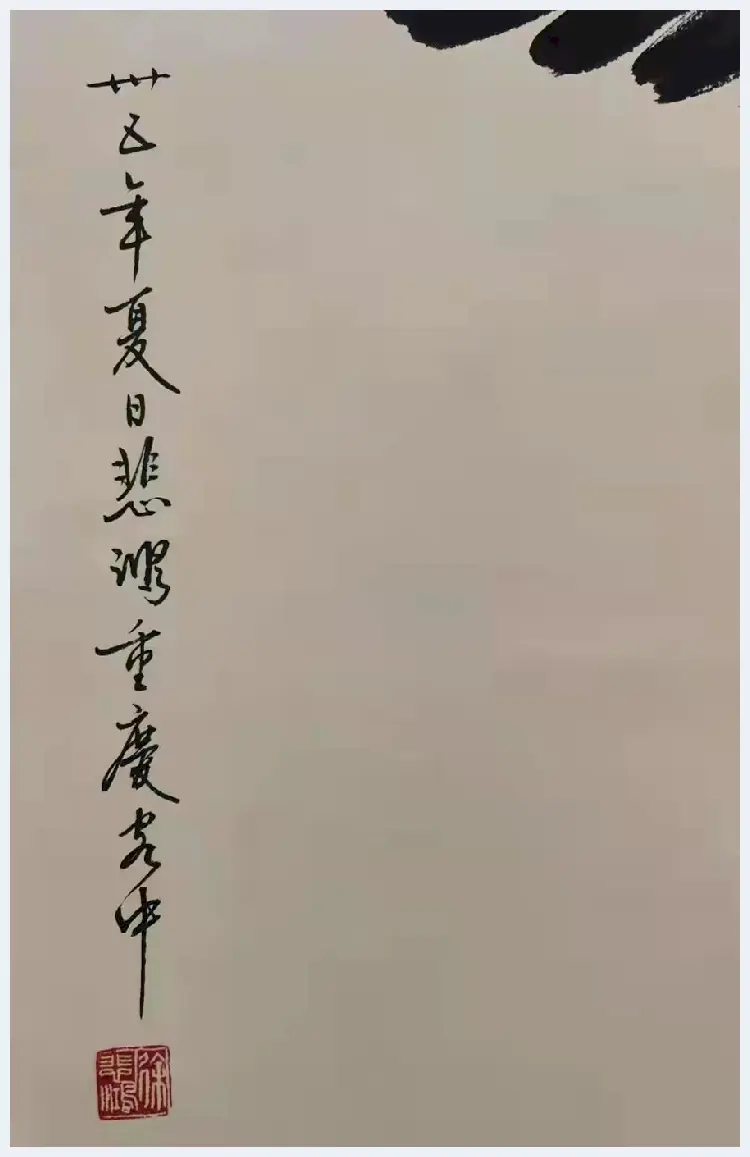 卅五年夏日悲鸿重慶客中
徐悲鴻